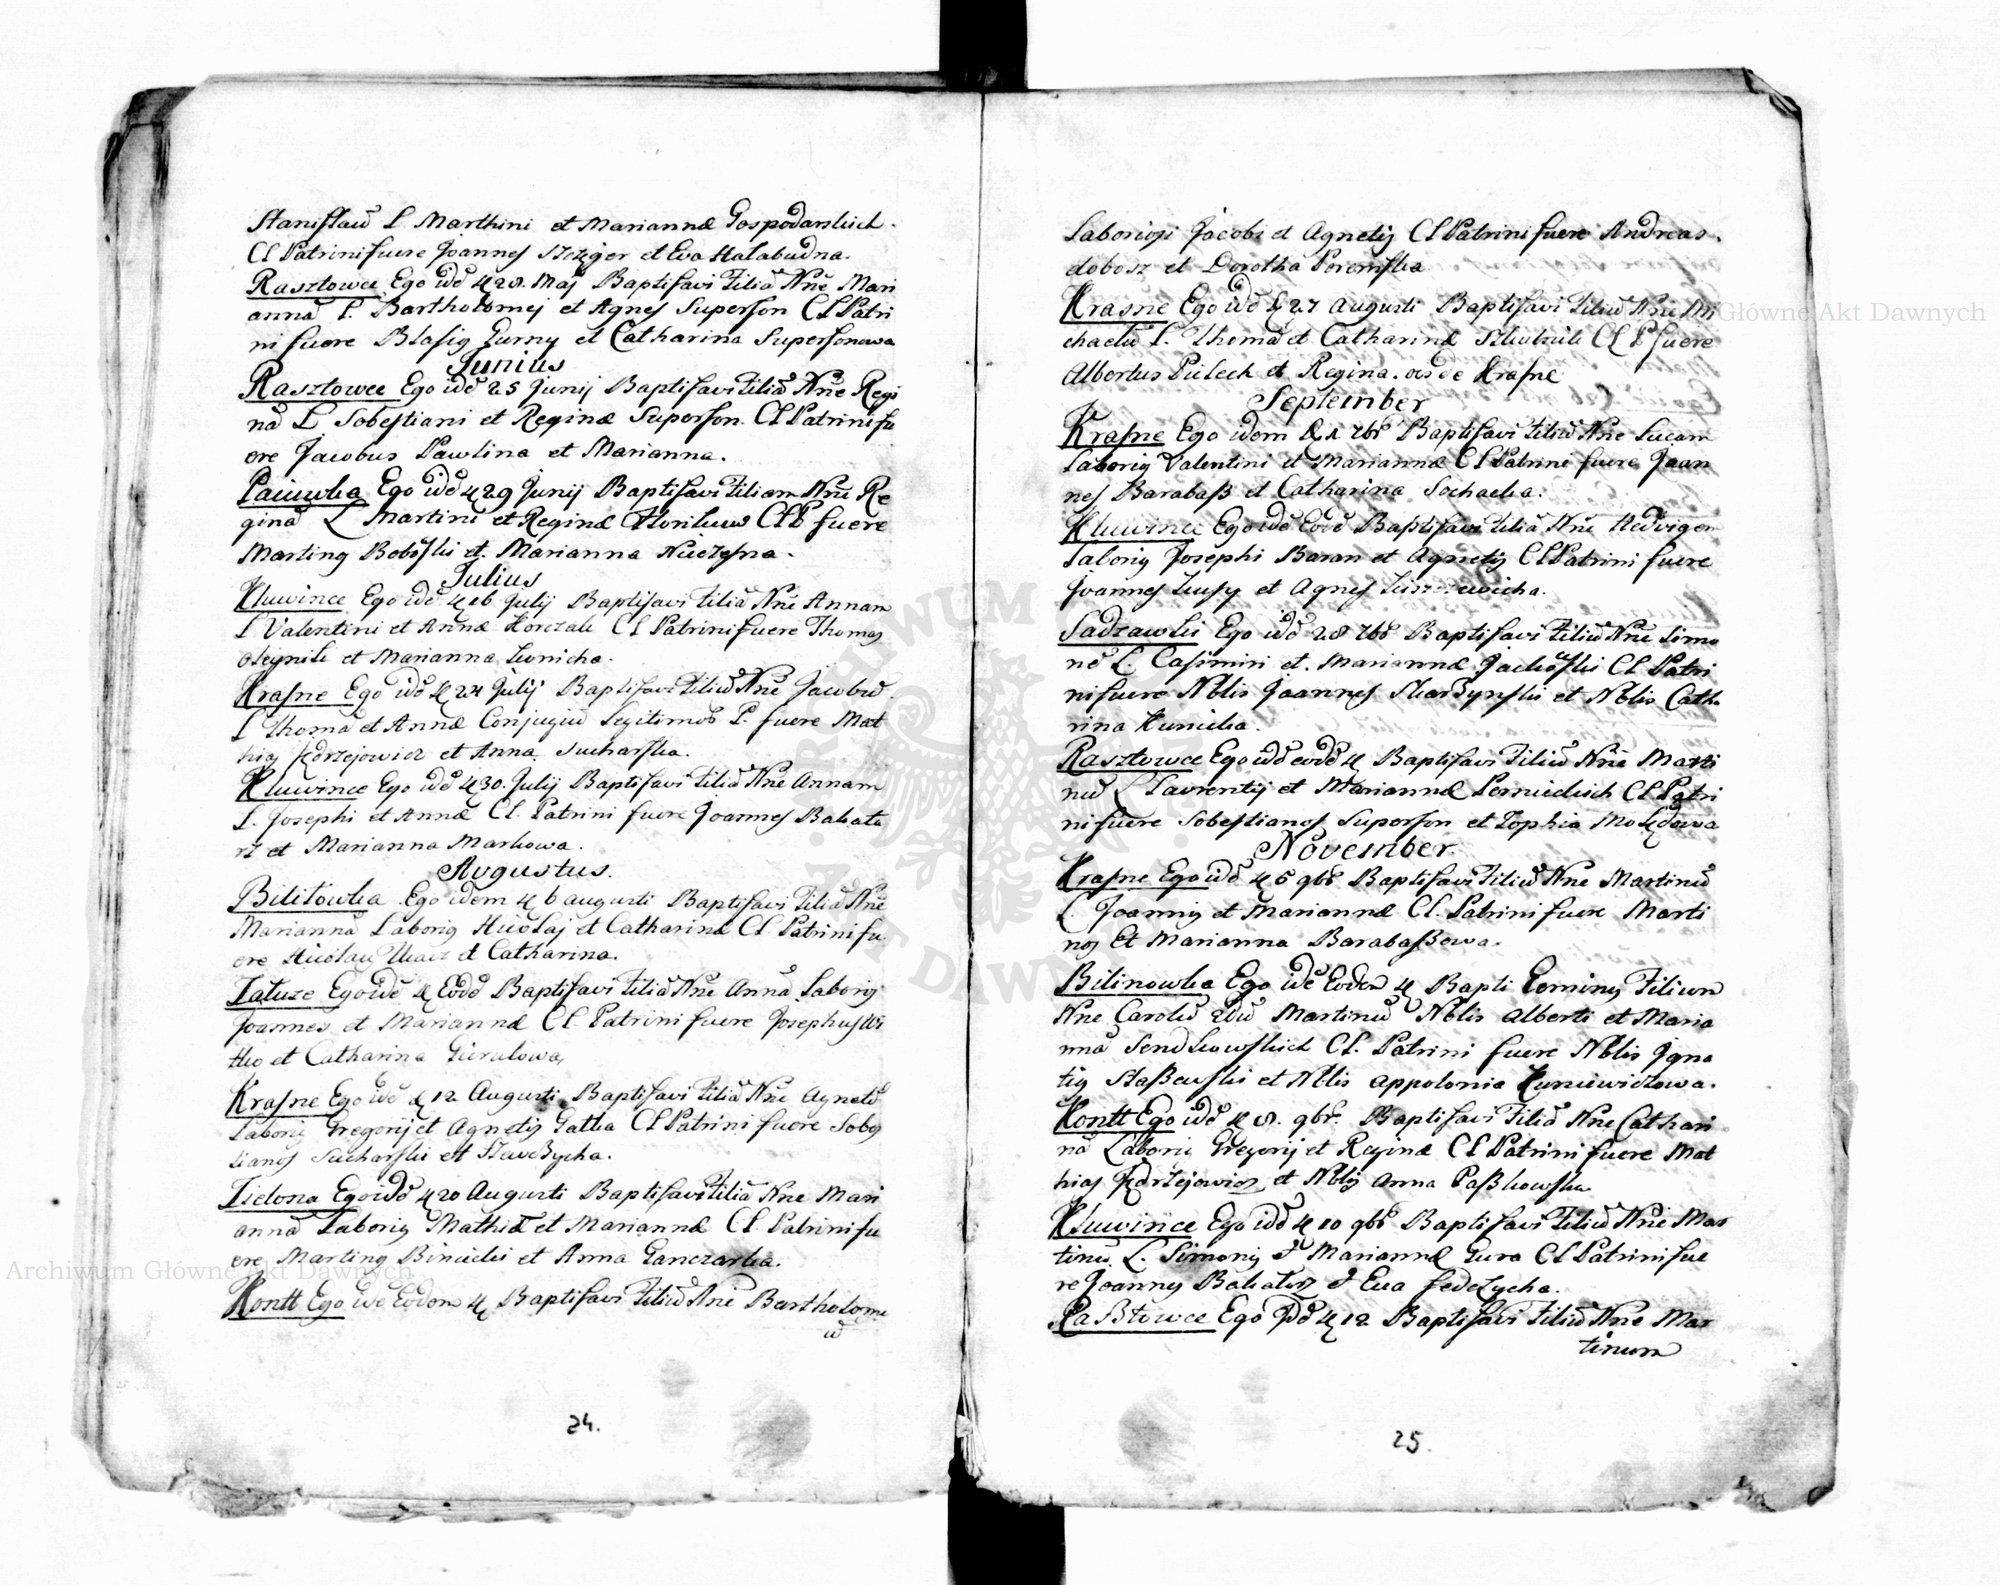 Stanislaū L Marthini et Mariannæ Gospodarskich.
CL Patrini fuere Joannes et Eva Halabudna.
Rasztowce Ego idē 28. Maj Baptisavi Filiā Nñe Mari
annā L. Bartholomej et Agnes Superson CL Patri
ni fuere Blasig Gurny et Catharina Supersonowa
Junius
Rasztowce Ego idē 25 Junij Baptisavi Filiā Nñe Regi
nā L Sobestiani et Reginæ Superson CL Patrini fu
ere Jacobus Pawlina et Marianna.
Ego idē 29 Junij Baptisavi Filiam Nñe Re
ginā L Martini et Reginæ CLP fuere
Marting et Marianna
Julius
Kluwince Ego idē 16 Julij Baptisavi Filiā Nñe Annam
L Valentini et Annæ CL Patrini fuere Thomas
Oleynik et Marianna
Krasne Ego idē 24 Julij Baptisavi Filiū Nñe Jacobū
L Thomæ et Annæ Conjugiū Legitimob P. fuere Mat
hias Jędrzejowicz et Anna Sucharska.
Kluwince Ego idē 30. Julij Baptisavi Filiā Nñe Annam
L. Josephi et Annæ CL. Patrini fuere Joannes Bakata
rz et Marianna Markowa.
Augustus.
Bilitowka Ego idem 6 augusti Baptisavi Filiā Nñe
Mariannā Laborig Nicolaj et Catharinæ CL Patrini fu
ere Nicolau et Catharina.
Ego idē Eodē Baptisavi Filiā Nñe Annā Laborig
Joannes et Mariannæ CL. Patrini fuere Josephus Wi
tko et Catharina
Krasne Ego idē 12 Augusti Baptisavi Filiā Nñe Agnetē
Laborig Gregorij et Agnetis Gatka CL Patrini fuere Sobes
tianos Sucharski et
Zielona Ego idē 20 Augusti Baptisavi Filiā Nñe Mari
annā Laborig Mathiæ et Mariannæ CL. Patrini fu
ere Marting et Anna Ganczarka.
Kontt Ego idē Eodem Baptisavi Filiū Nñe Bartholome
ū
24.
Laboriosi Jacobi et Agnetis CL Patrini fuere Andreas
dobosz et Dorotha Poremska
Krasne Ego idē 27 Augusti Baptisavi Filiū Nñe Mi
chaelū L. Thomæ et Catharinæ CL P fuere
Albertus et Regina. de Krasne
September
Krasne Ego idem 1 7br Baptisavi Filiū Nñe Lucam
Laborig Valentini et Mariannæ CL Patrini fuere Joan
nes Barabaß et Catharina Sochacka.
Kluwince Ego idē Eodē Baptisavi Filiā Nñe Hedvigem
Laborig Josephi Baran et Agnetis CL Patrini fuere
Joannes et Agnes
Sadzawki Ego idē 28 7br Baptisavi Filiū Nñe Simo
nē L. Casimiri et Mariannæ CL Patri
ni fuere Nblis Joannes Skardynski et Nblis Cath
rina Kunicka.
Rasztowce Ego idē eodē Baptisavi Filiū Nñe Marti
nū L Laurentij et Mariannæ CL Patri
ni fuere Sobestianos Superson et Zophia
November
Krasne Ego idē 5 9br Baptisavi Filiū Nñe Martinū
L. Joannis et Mariannæ CL. Patrini fuere Marti
nos Et Marianna Barabaßowa.
Bilinowka Ego idē Eodem Bapti Geminus Filium
Nñe Carolū 2dū Martinū Nblis Alberti et Maria
nnā CL. Patrini fuere Nblis Igna
tig Staßewski et Nblis Appolonia Kuniewiczowa.
Kontt Ego idē 8. 9br. Baptisavi Filiā Nñe Cathari
nā Laborig Gregorij et Reginæ CL Patrini fuere Mat
hias Jędrzejowicz et Nblis Anna Paßkowska
Kluwince Ego idē 10 9br Baptisavi Filiū Nñe Mar
tinū L. Simonig et Mariannæ Gura CL Patrini fue
re Joannes Bakatarz et Eua fedczycha.
Raßtowce Ego idē 12 Baptisavi Filiū Nñe Mar
tinum
25.
Archiwum Główne Akt Dawnych